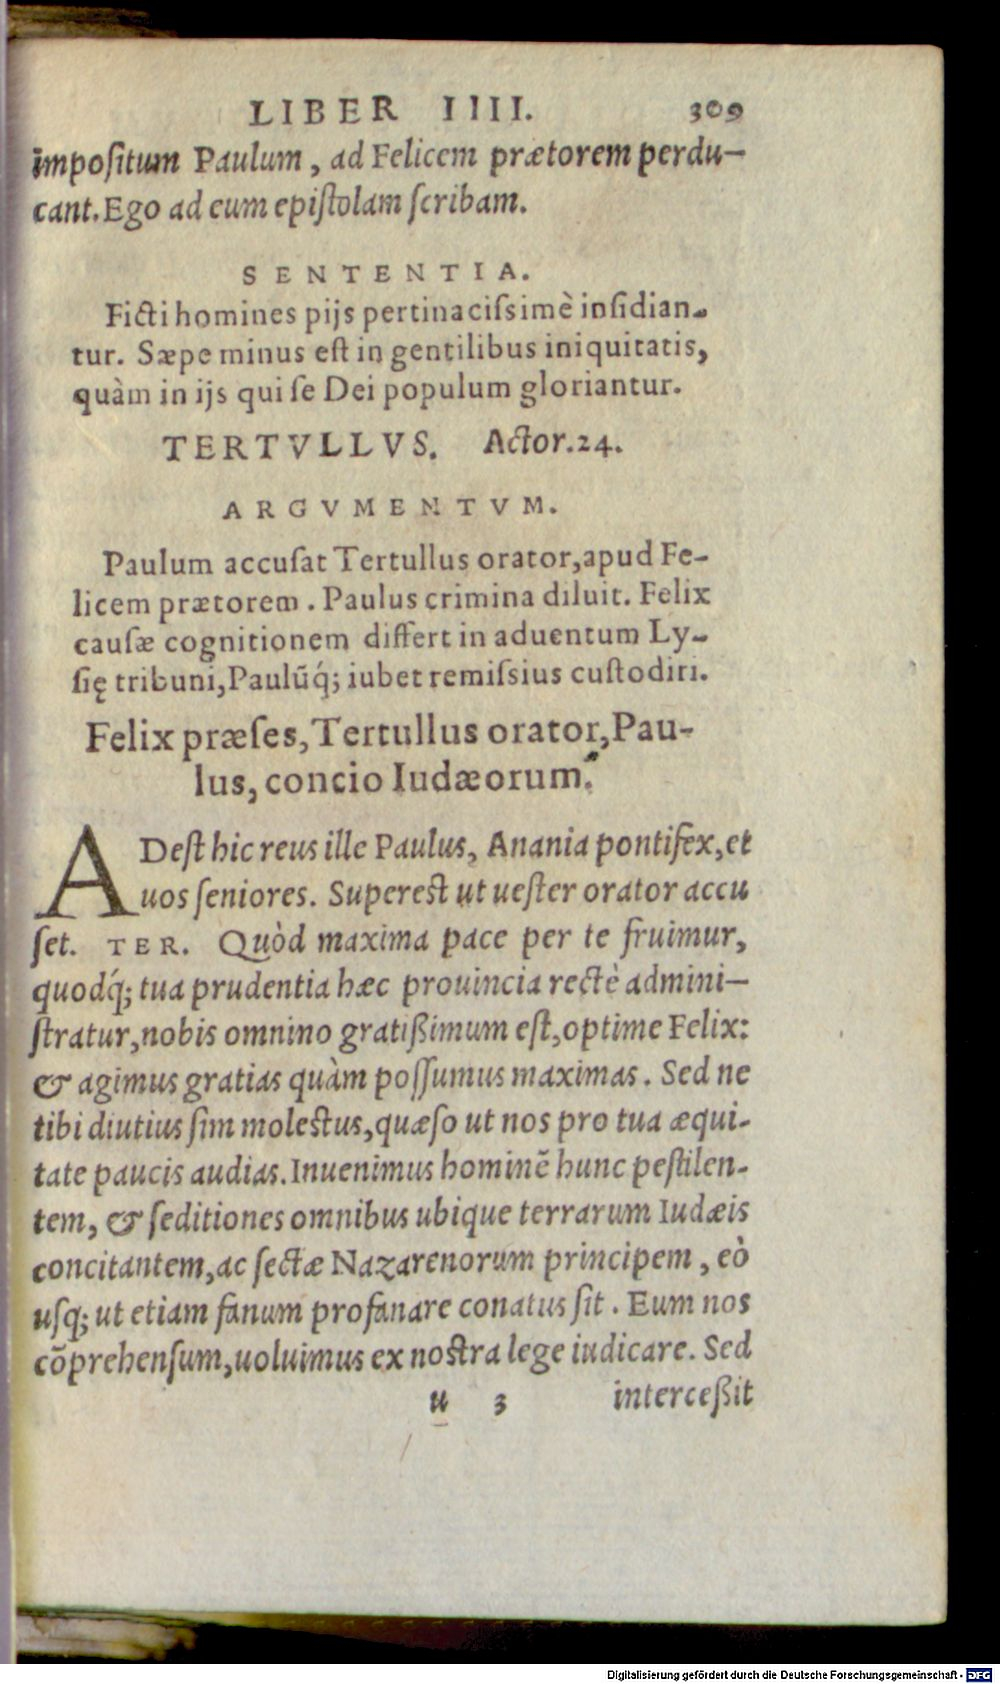 LIBER IIII. 309
impoſitum Paulum, ad Felicem prætorem perdu-
cant. Ego ad eum epiſtolam ſcribam.
SENTENTIA.
Ficti homines pijs pertinaciſsimè inſidian-
tur. Sæpe minus eſt in gentilibus iniquitatis,
quàm in ijs qui ſe Dei populum gloriantur.
TERTVLLVS. Actor.24.
ARGVMENTVM.
Paulum accuſat Tertullus orator, apud Fe-
licem prætorem. Paulus crimina diluit. Felix
cauſæ cognitionem differt in aduentum Ly-
ſię tribuni, Paulũq́; iubet remiſsius cuſtodiri.
Felix præſes, Tertullus orator, Pau-
lus, concio Iudæorum.
ADeſt hic reus ille Paulus, Anania pontifex, et
uos ſeniores. Supereſt ut ueſter orator accu
ſet. TER. Quòd maxima pace per te fruimur,
quodq́; tua prudentia hæc prouincia rectè admini-
ſtratur, nobis omnino gratißimum eſt, optime Felix:
& agimus gratias quàm poſſumus maximas. Sed ne
tibi diutius ſim moleſtus, quæſo ut nos pro tua æqui-
tate paucis audias. Inuenimus hominẽ hunc peſtilen-
tem, & ſeditiones omnibus ubique terrarum Iudæis
concitantem, ac ſectæ Nazarenorum principem, eò
uſq; ut etiam fanum profanare conatus ſit. Eum nos
cõprehenſum, uoluimus ex noſtra lege iudicare. Sed
u 3 interceßit
Digitalisierung gefördert durch die Deutsche Forschungsgemeinschaft - DFG